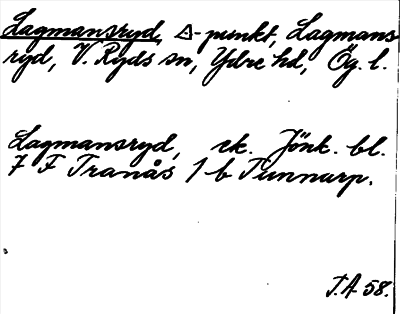 Lagmansryd, △-punkt, Lagmans
ryd, V. Ryds sn, Ydre hd, Ög. l.
Lagmansryd, ek. Jönk. bl.
7 F Tranås 1 b Tunnarp.
T.A 58.